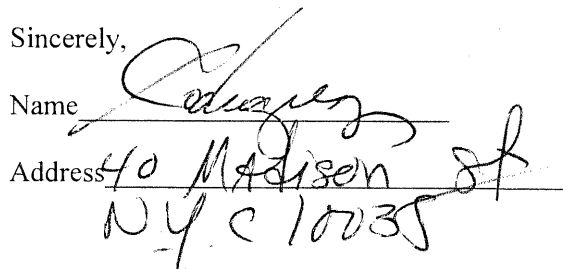 Sincerely,
Name
Address 40 Madison st
NYC 10035